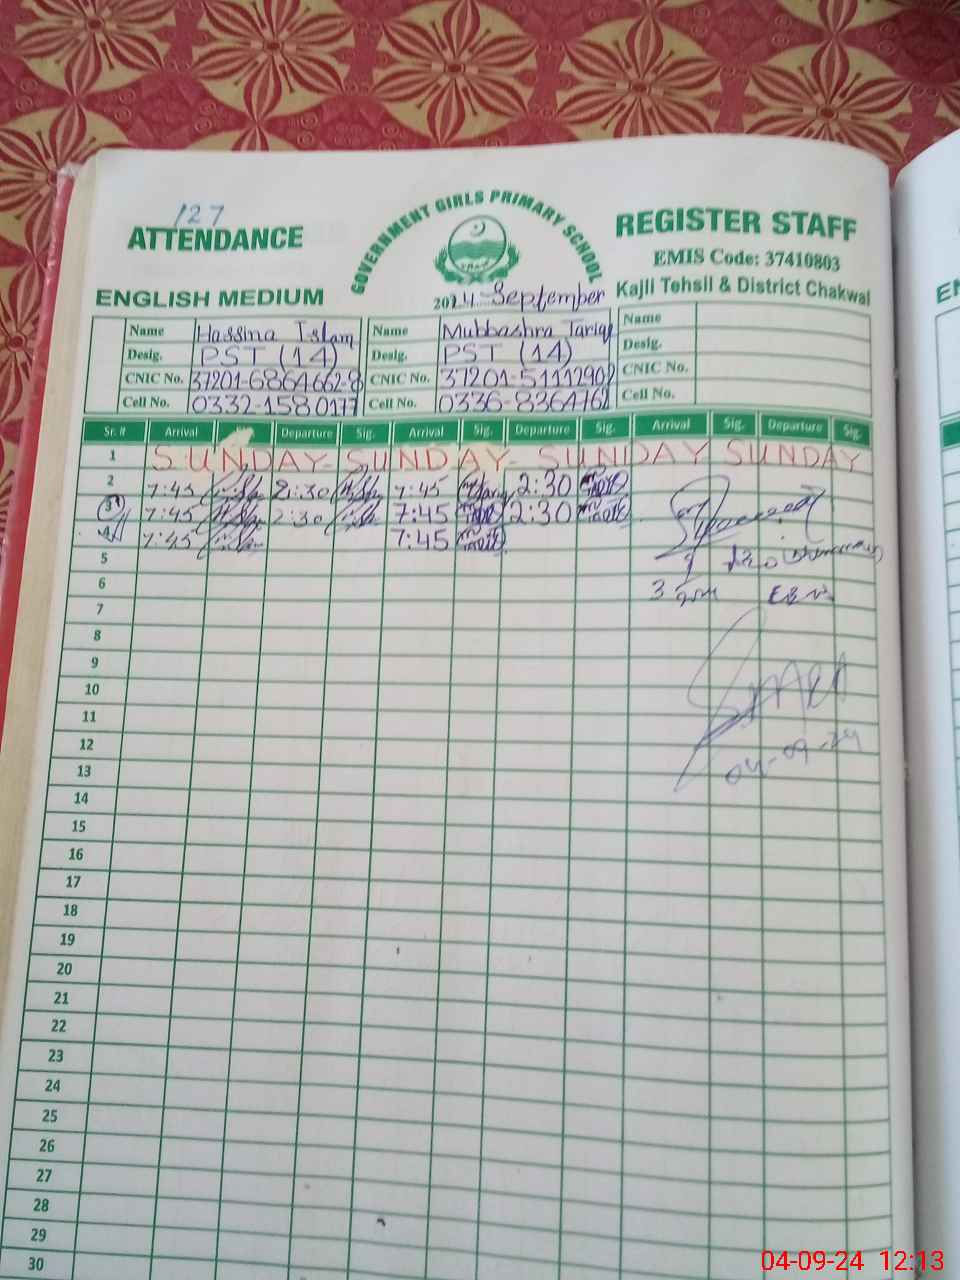 127
ATTENDANCE
GOVERNMENT GIRLS PRIMARY SCHOOL
REGISTER STAFF
EMIS Code: 37410803
ENGLISH MEDIUM
2024 September
Kajli Tehsil & District Chakwal
Name Hassina Islam Name Mubbashra Tariq Name
Desig. PST (14) Desig. PST (14) Desig.
CNIC No. 37201-6864662-8 CNIC No. 37201-51112902 CNIC No.
Cell No. 0332-1580177 Cell No. 0336-8364762 Cell No.
Sr. # Arrival Departure Sig. Arrival Sig. Departure Sig. Arrival Sig. Departure Sig.
1 SUNDAY - SUNDAY - SUNDAY SUNDAY
2 7:45 2:30 7:45 2:30
3 7:45 2:30 7:45 2:30
4 7:45 7:45
5
6
7
8
9
10
11
04-09-24
12
13
14
15
16
17
18
19
20
21
22
23
24
25
26
27
28
29
30
04-09-24 12:13